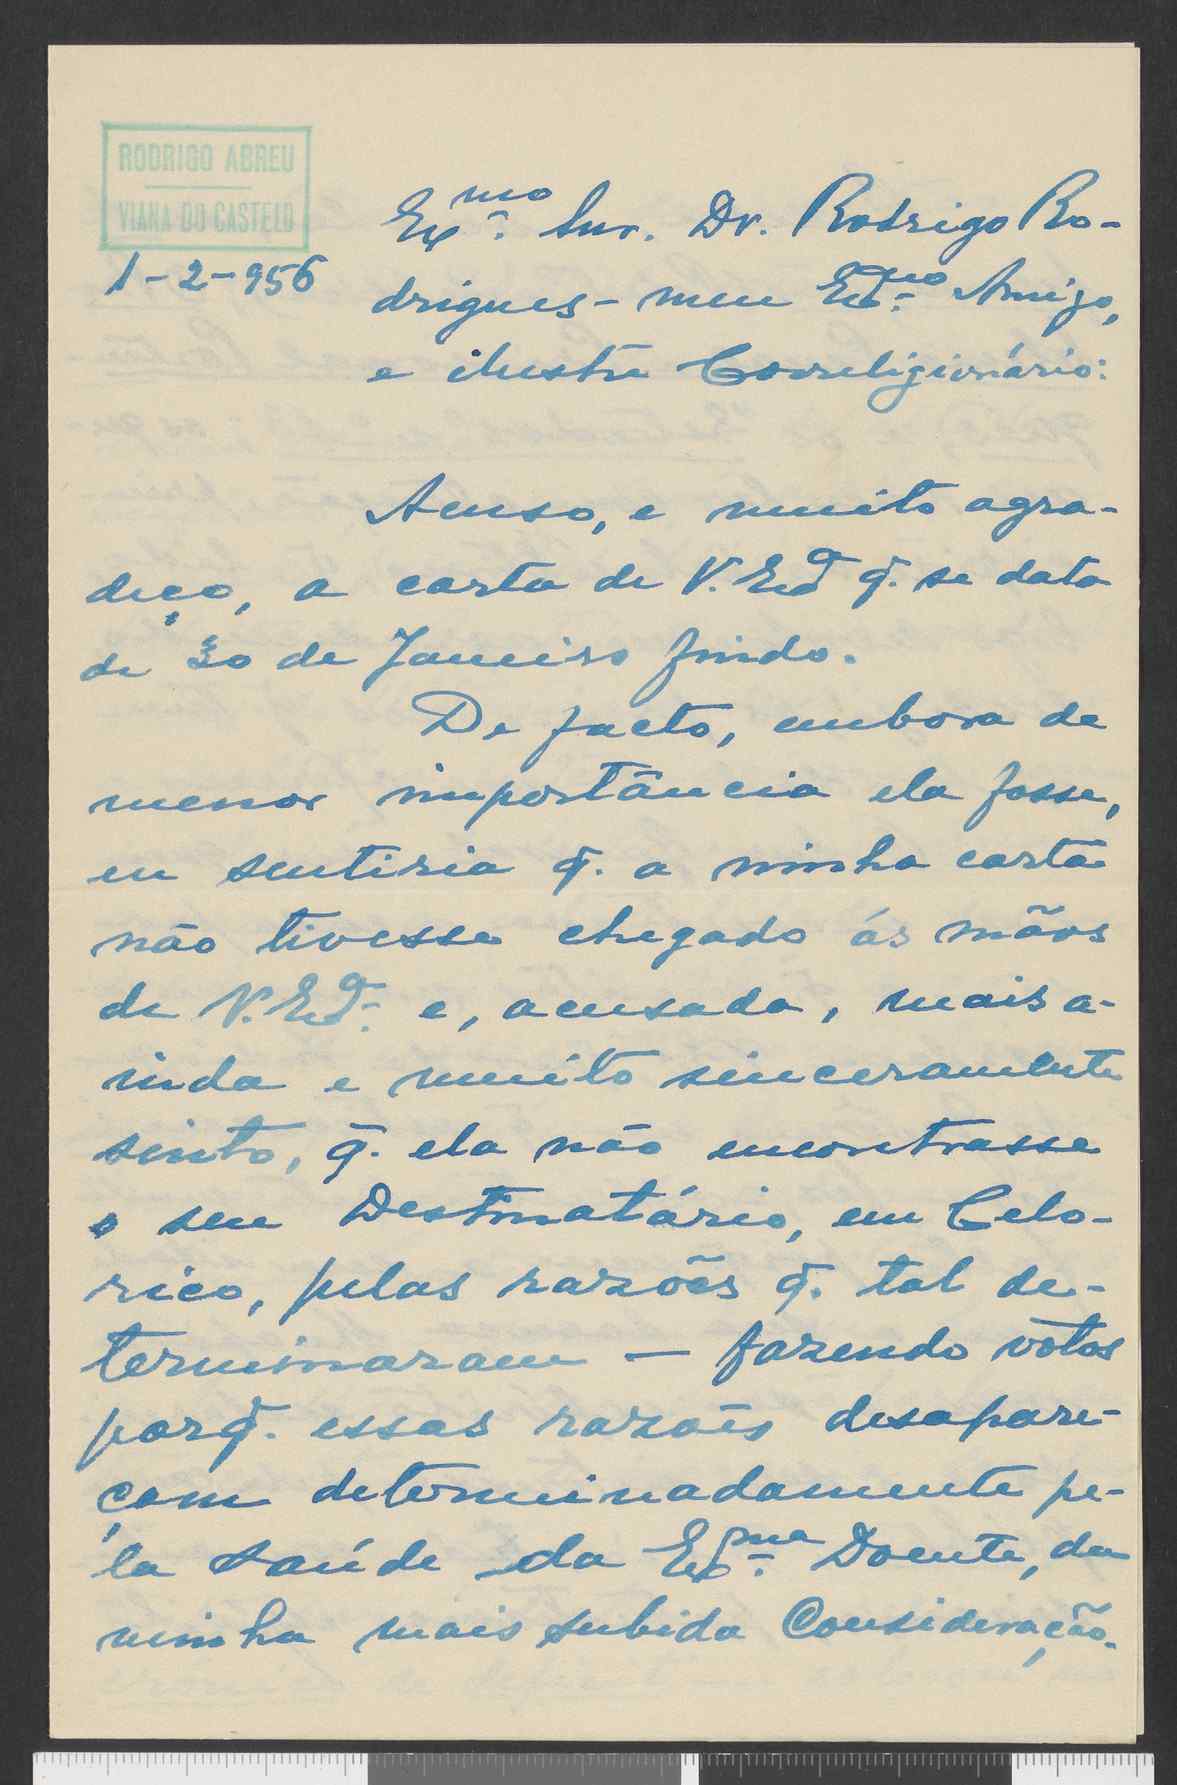 RODRIGO ABREU
VIANA DO CASTELO
1-2-956
Exmo. Snr. Dr. Rodrigo Ro-
drigues - meu Exmo. Amigo,
e ilustre Correligionário:
Acuso, e muito agra-
deço, a carta de V. Exa q̃. se data
de 30 de Janeiro findo.
De facto, embora de
menor importância ela fosse,
eu sentiria q̃. a minha carta
não tivesse chegado ás mãos
de V. Exa. e, acusada, mais a-
inda e muito sinceramente
sinto, q̃. ela não encontrasse
o seu Destinatário, em Celo-
rico, pelas razões q̃. tal de-
terminaram — fazendo votos
porq̃. essas razões desapare-
çam determinadamente pe-
la saúde da Exma. Doente, da
minha mais subida Consideração.